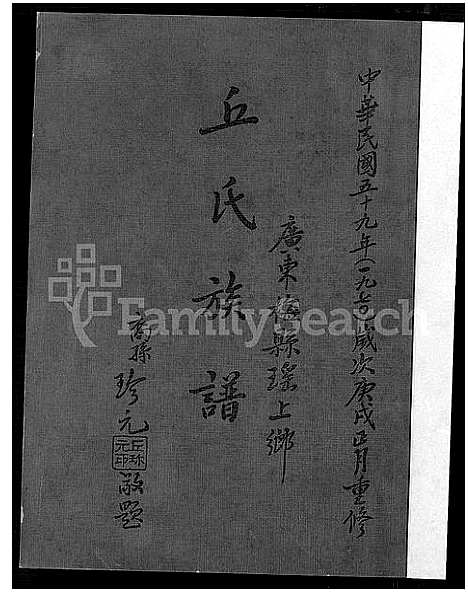 中華民國五十九年(一九七〇)歲次庚戌正月重修
廣東梅縣瑤上鄉
丘氏族譜
裔孫 珍元 敬題
丘珍元印
FamilySearch